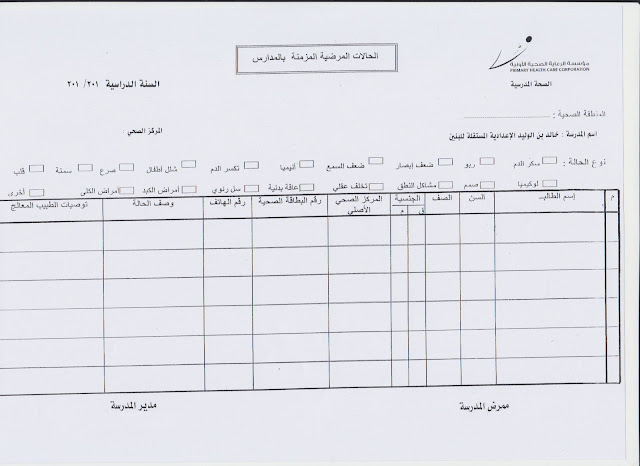 الحالات المرضية المزمنة بالمدارس
مؤسسة الرعاية الصحية الأولية
PRIMARY HEALTH CARE CORPORATION
الصحة المدرسية
السنة الدراسية ٢٠١ /٢٠١
المنطقة الصحية :
اسم المدرسة : خالد بن الوليد الإعدادية المستقلة للبنين
المركز الصحي
نوع الحالة : سكر الدم ربو ضعف إبصار ضعف السمع أنيميا تكسر الدم شلل اطفال صرع سمنة قلب
لوكيميا صمم مشاكل النطق تخلف عقلي عاقة بدنية سل رئوي أمراض الكبد أمراض الكلى أخرى
م إسم الطالب السن الصف الجنسية المركز الصحي رقم البطاقة الصحية رقم الهاتف وصف الحالة توصيات الطبيب المعالج
ق م الأصلي
ممرض المدرسة مدير المدرسة